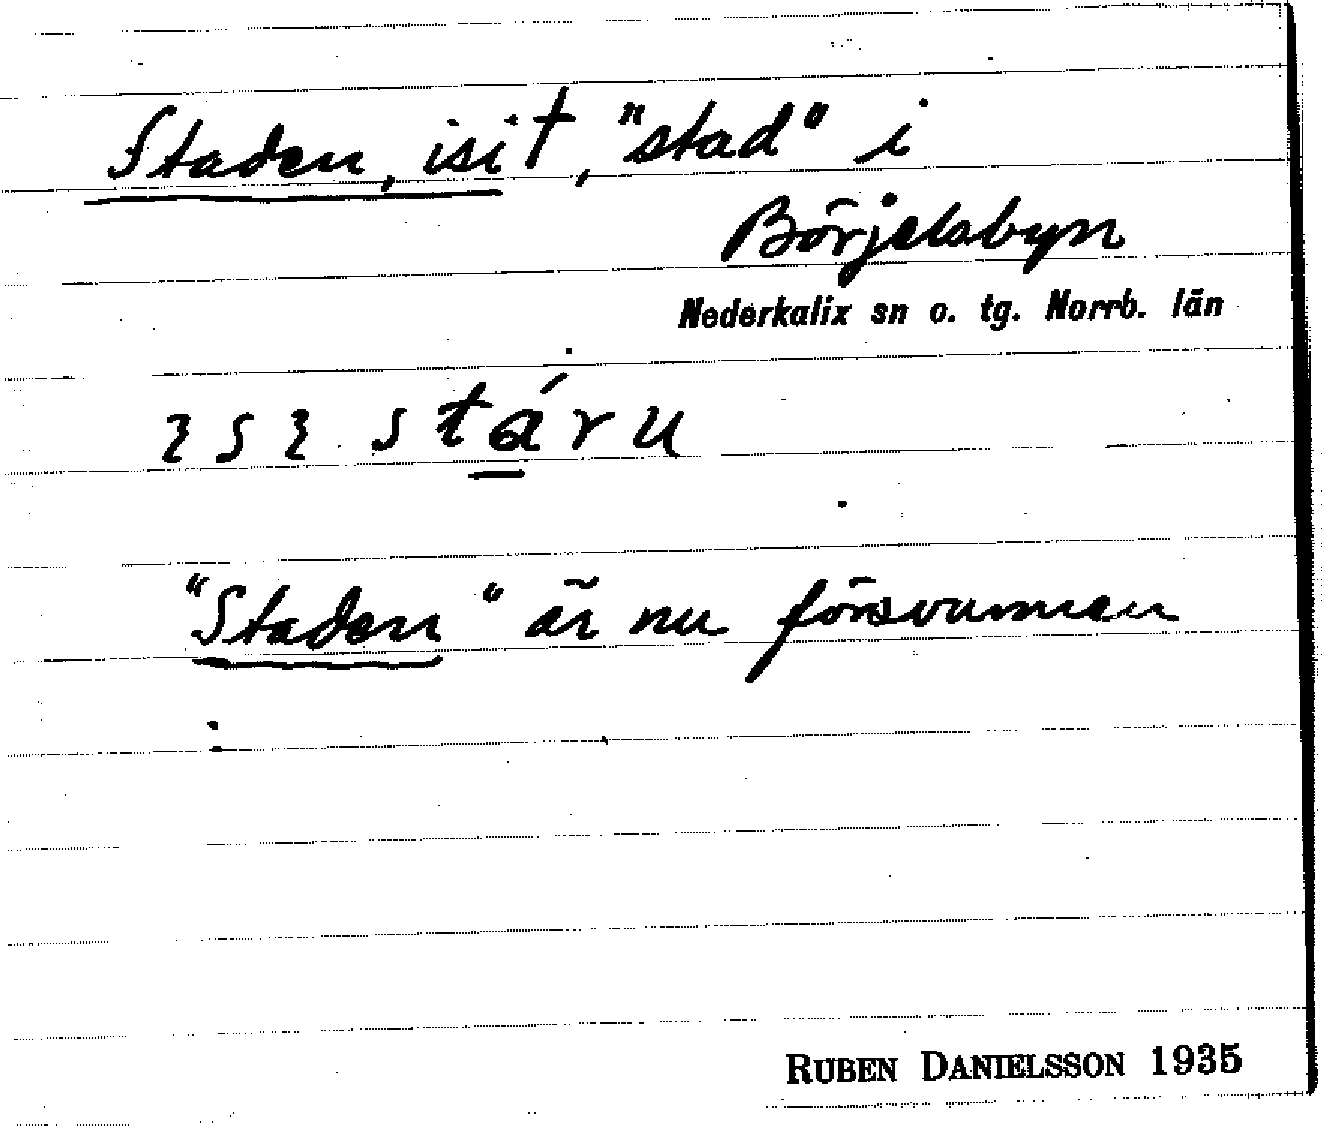 Staden, isit, "stad" i
Börjelsbyn
Nederkalix sn o. tg. Norrb. län
stáru
"Staden" är nu försvunnen
RUBEN DANIELSSON 1935